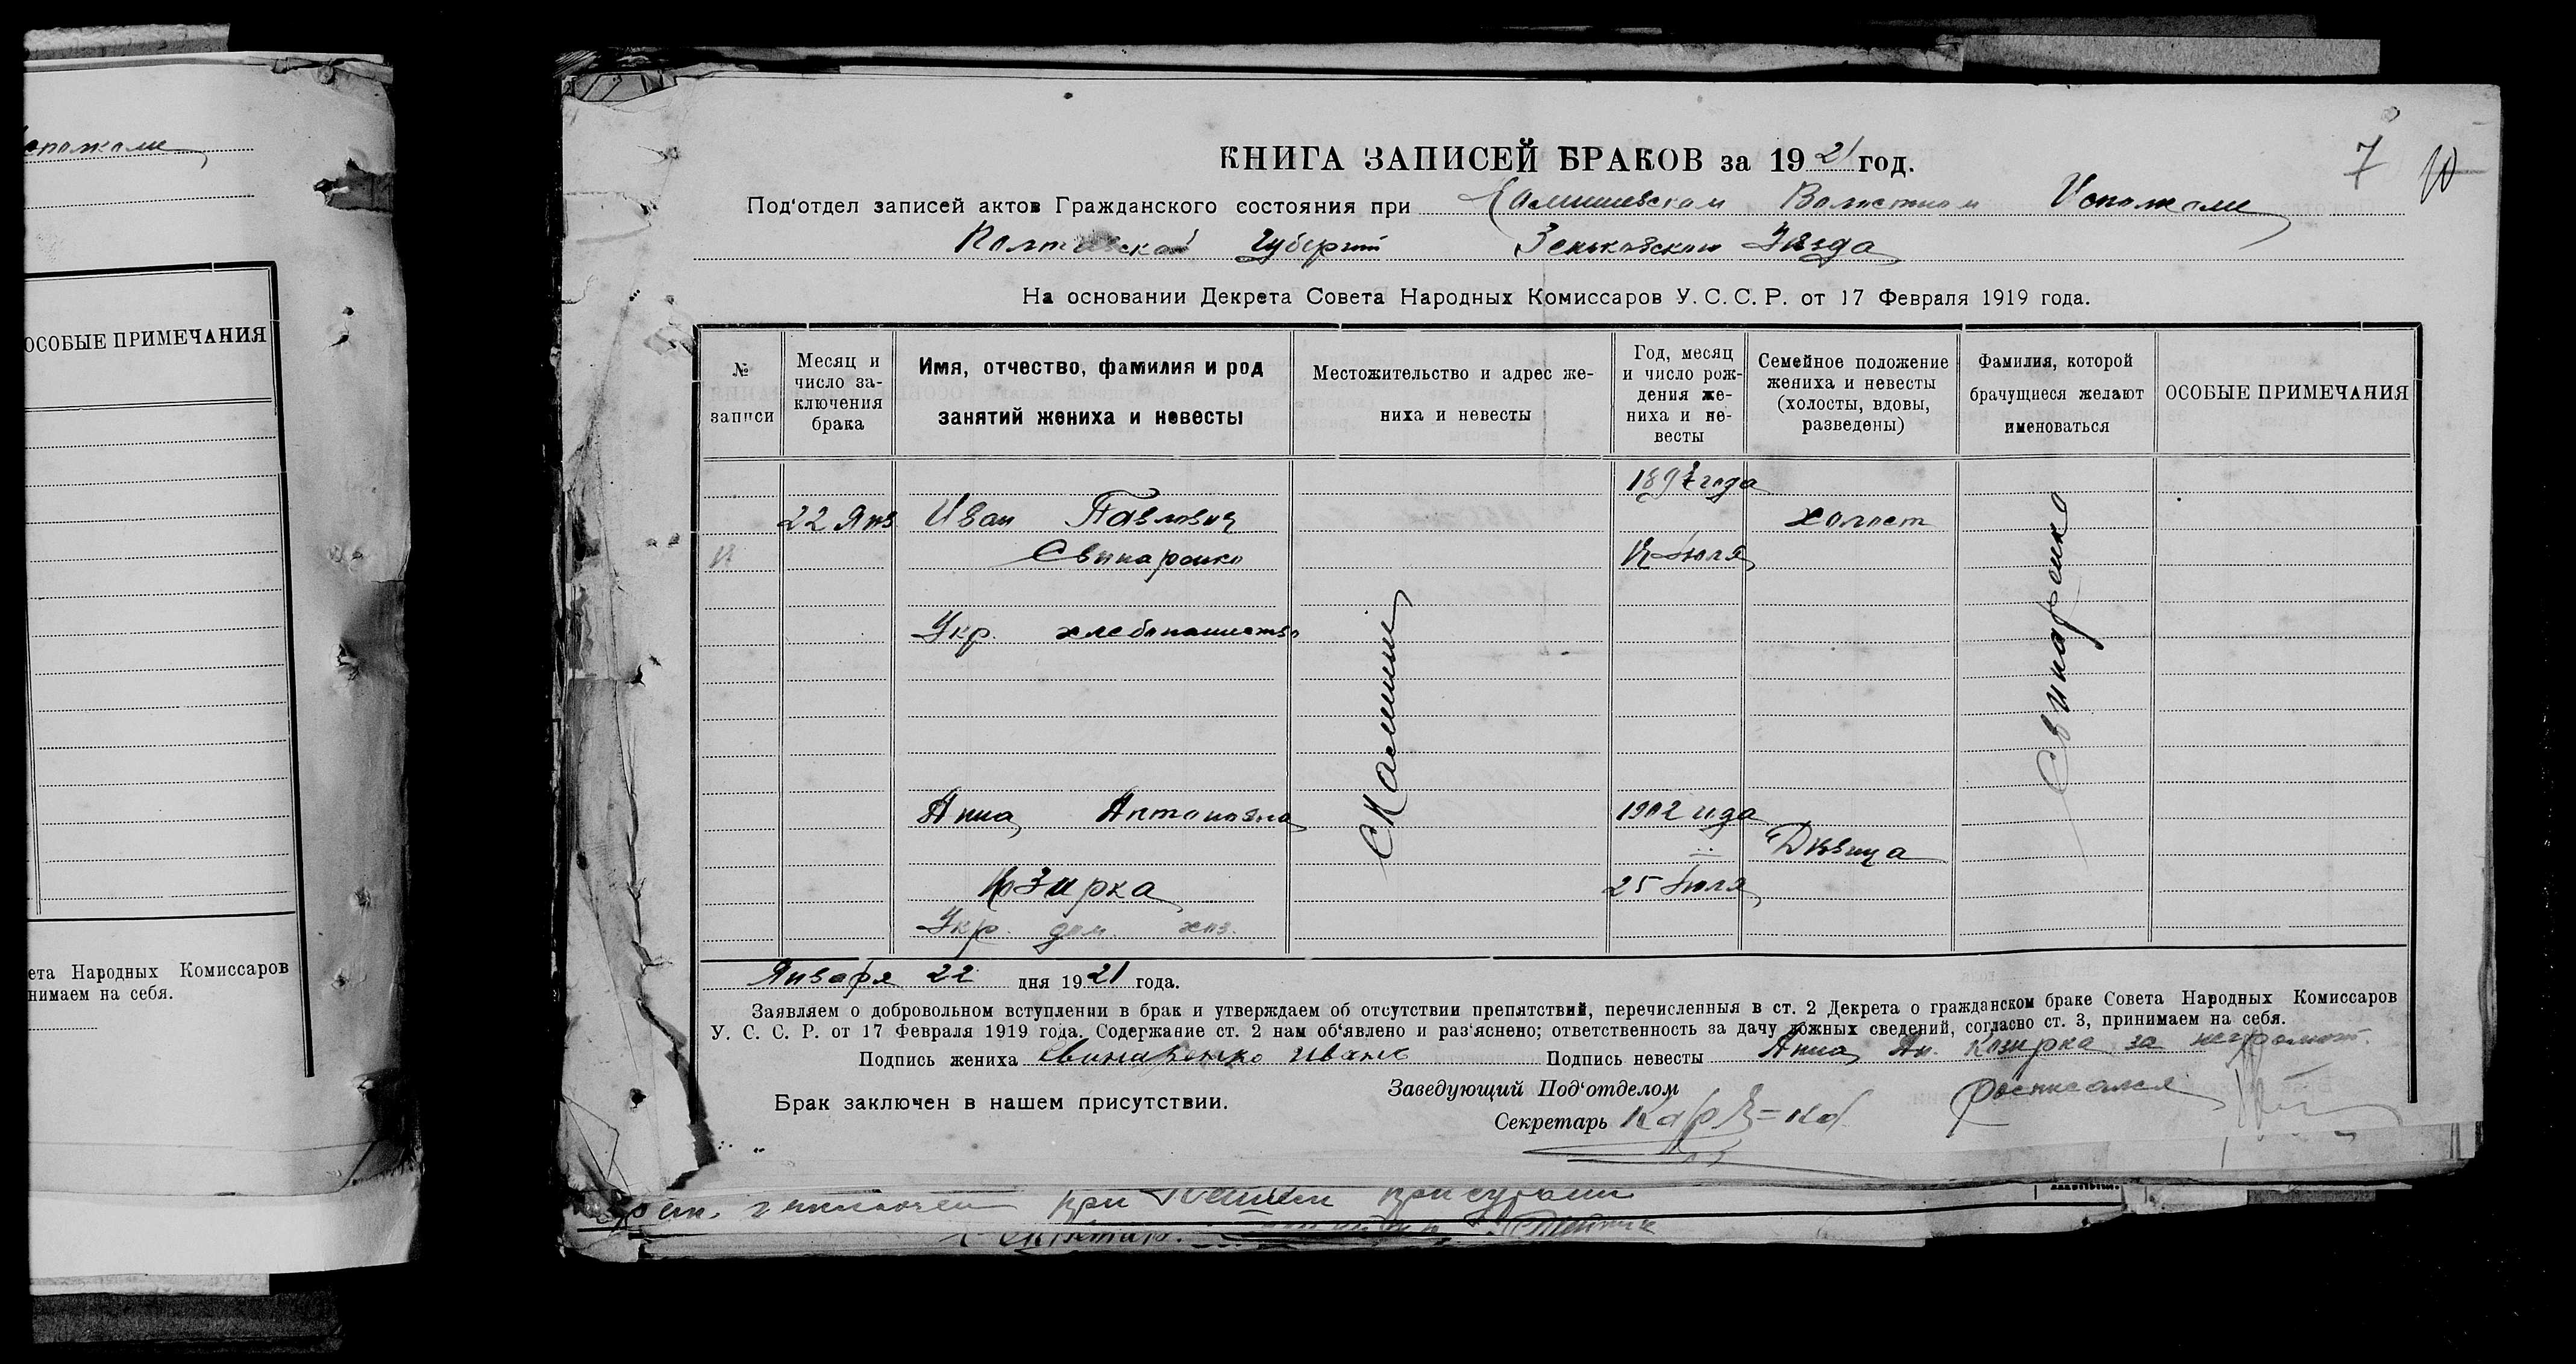 ОСОБЫЕ ПРИМЕЧАНИЯ
ета Народных Комиссаров
нимаем на себя.
7
КНИГА ЗАПИСЕЙ БРАКОВ за 1921 год.
Под'отдел записей актов Гражданского состояния при Камышевском Волостном Исполкоме
Полтавской Губернии Зеньковского Уезда
На основании Декрета Совета Народных Комиссаров У. С. С. Р. от 17 Февраля 1919 года.
№ записи
Месяц и число за-
ключения брака
Имя, отчество, фамилия и род
занятий жениха и невесты
Местожительство и адрес же-
ниха и невесты
Год, месяц
и число рож-
дения же-
ниха и не-
весты
Семейное положение
жениха и невесты
(холосты, вдовы,
разведены)
Фамилия, которой
брачущиеся желают
именоваться
ОСОБЫЕ ПРИМЕЧАНИЯ
года
22 Янв Иван Павлович холост
Свинаренко Июля
Укр. хлебопашество
Свинаренко
Анна Антоновна 1902 года
Дѣвица
Козирка 25 Июля
Укр. дом. хоз.
Января 22 дня 1921 года.
Заявляем о добровольном вступлении в брак и утверждаем об отсутствии препятствий, перечисленныя в ст. 2 Декрета о гражданском браке Совета Народных Комиссаров
У. С. С. Р. от 17 Февраля 1919 года. Содержание ст. 2 нам об'явлено и раз'яснено; ответственность за дачу ложных сведений, согласно ст. 3, принимаем на себя.
Подпись жениха Свинаренко Иван Подпись невесты Анна Ан. Козирка за неграмот.
росписался
Заведующий Под'отделом
Брак заключен в нашем присутствии.
Секретарь